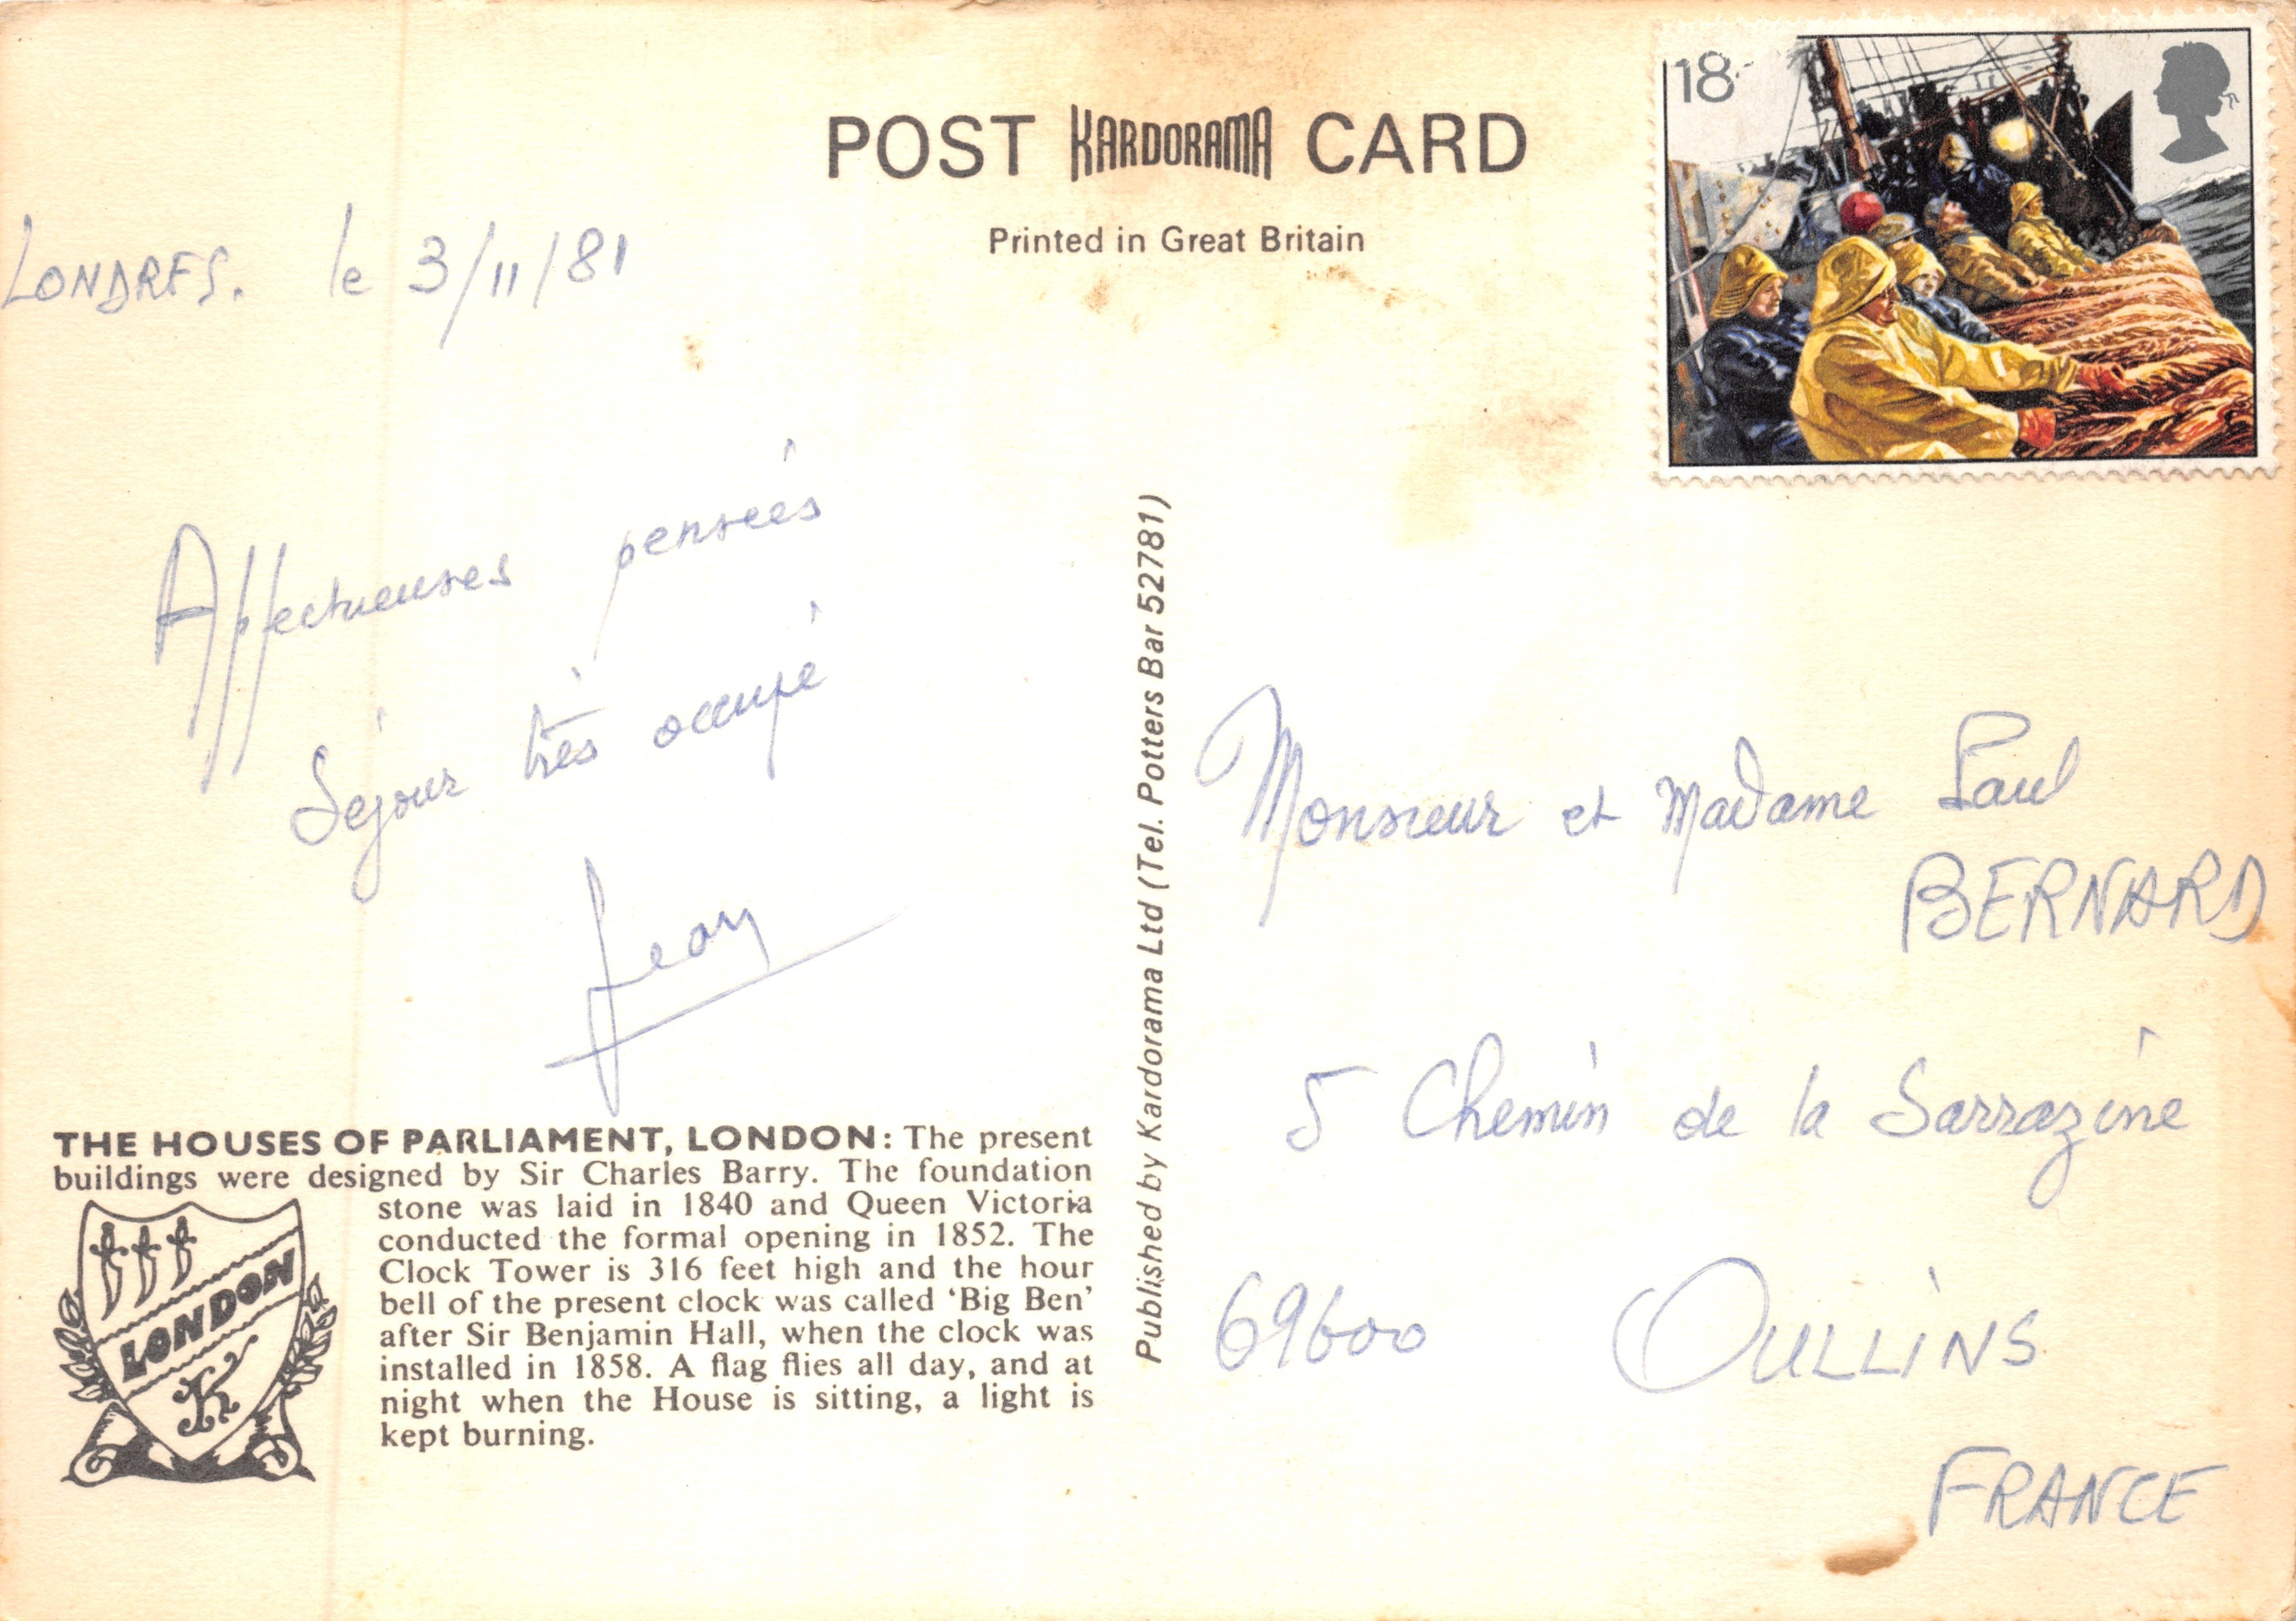 POST KARDORAMA CARD
Printed in Great Britain
18
LONDRES. le 3/11/81
Affectueuses pensées
Séjour très occupé
Jean
THE HOUSES OF PARLIAMENT, LONDON: The present
buildings were designed by Sir Charles Barry. The foundation
stone was laid in 1840 and Queen Victoria
conducted the formal opening in 1852. The
Clock Tower is 316 feet high and the hour
bell of the present clock was called ‘Big Ben’
after Sir Benjamin Hall, when the clock was
installed in 1858. A flag flies all day, and at
night when the House is sitting, a light is
kept burning.
LONDON
K
Published by Kardorama Ltd (Tel. Potters Bar 52781)
Monsieur et Madame Paul
BERNARD
5 Chemin de la Sarrazine
69600 OULLINS
FRANCE